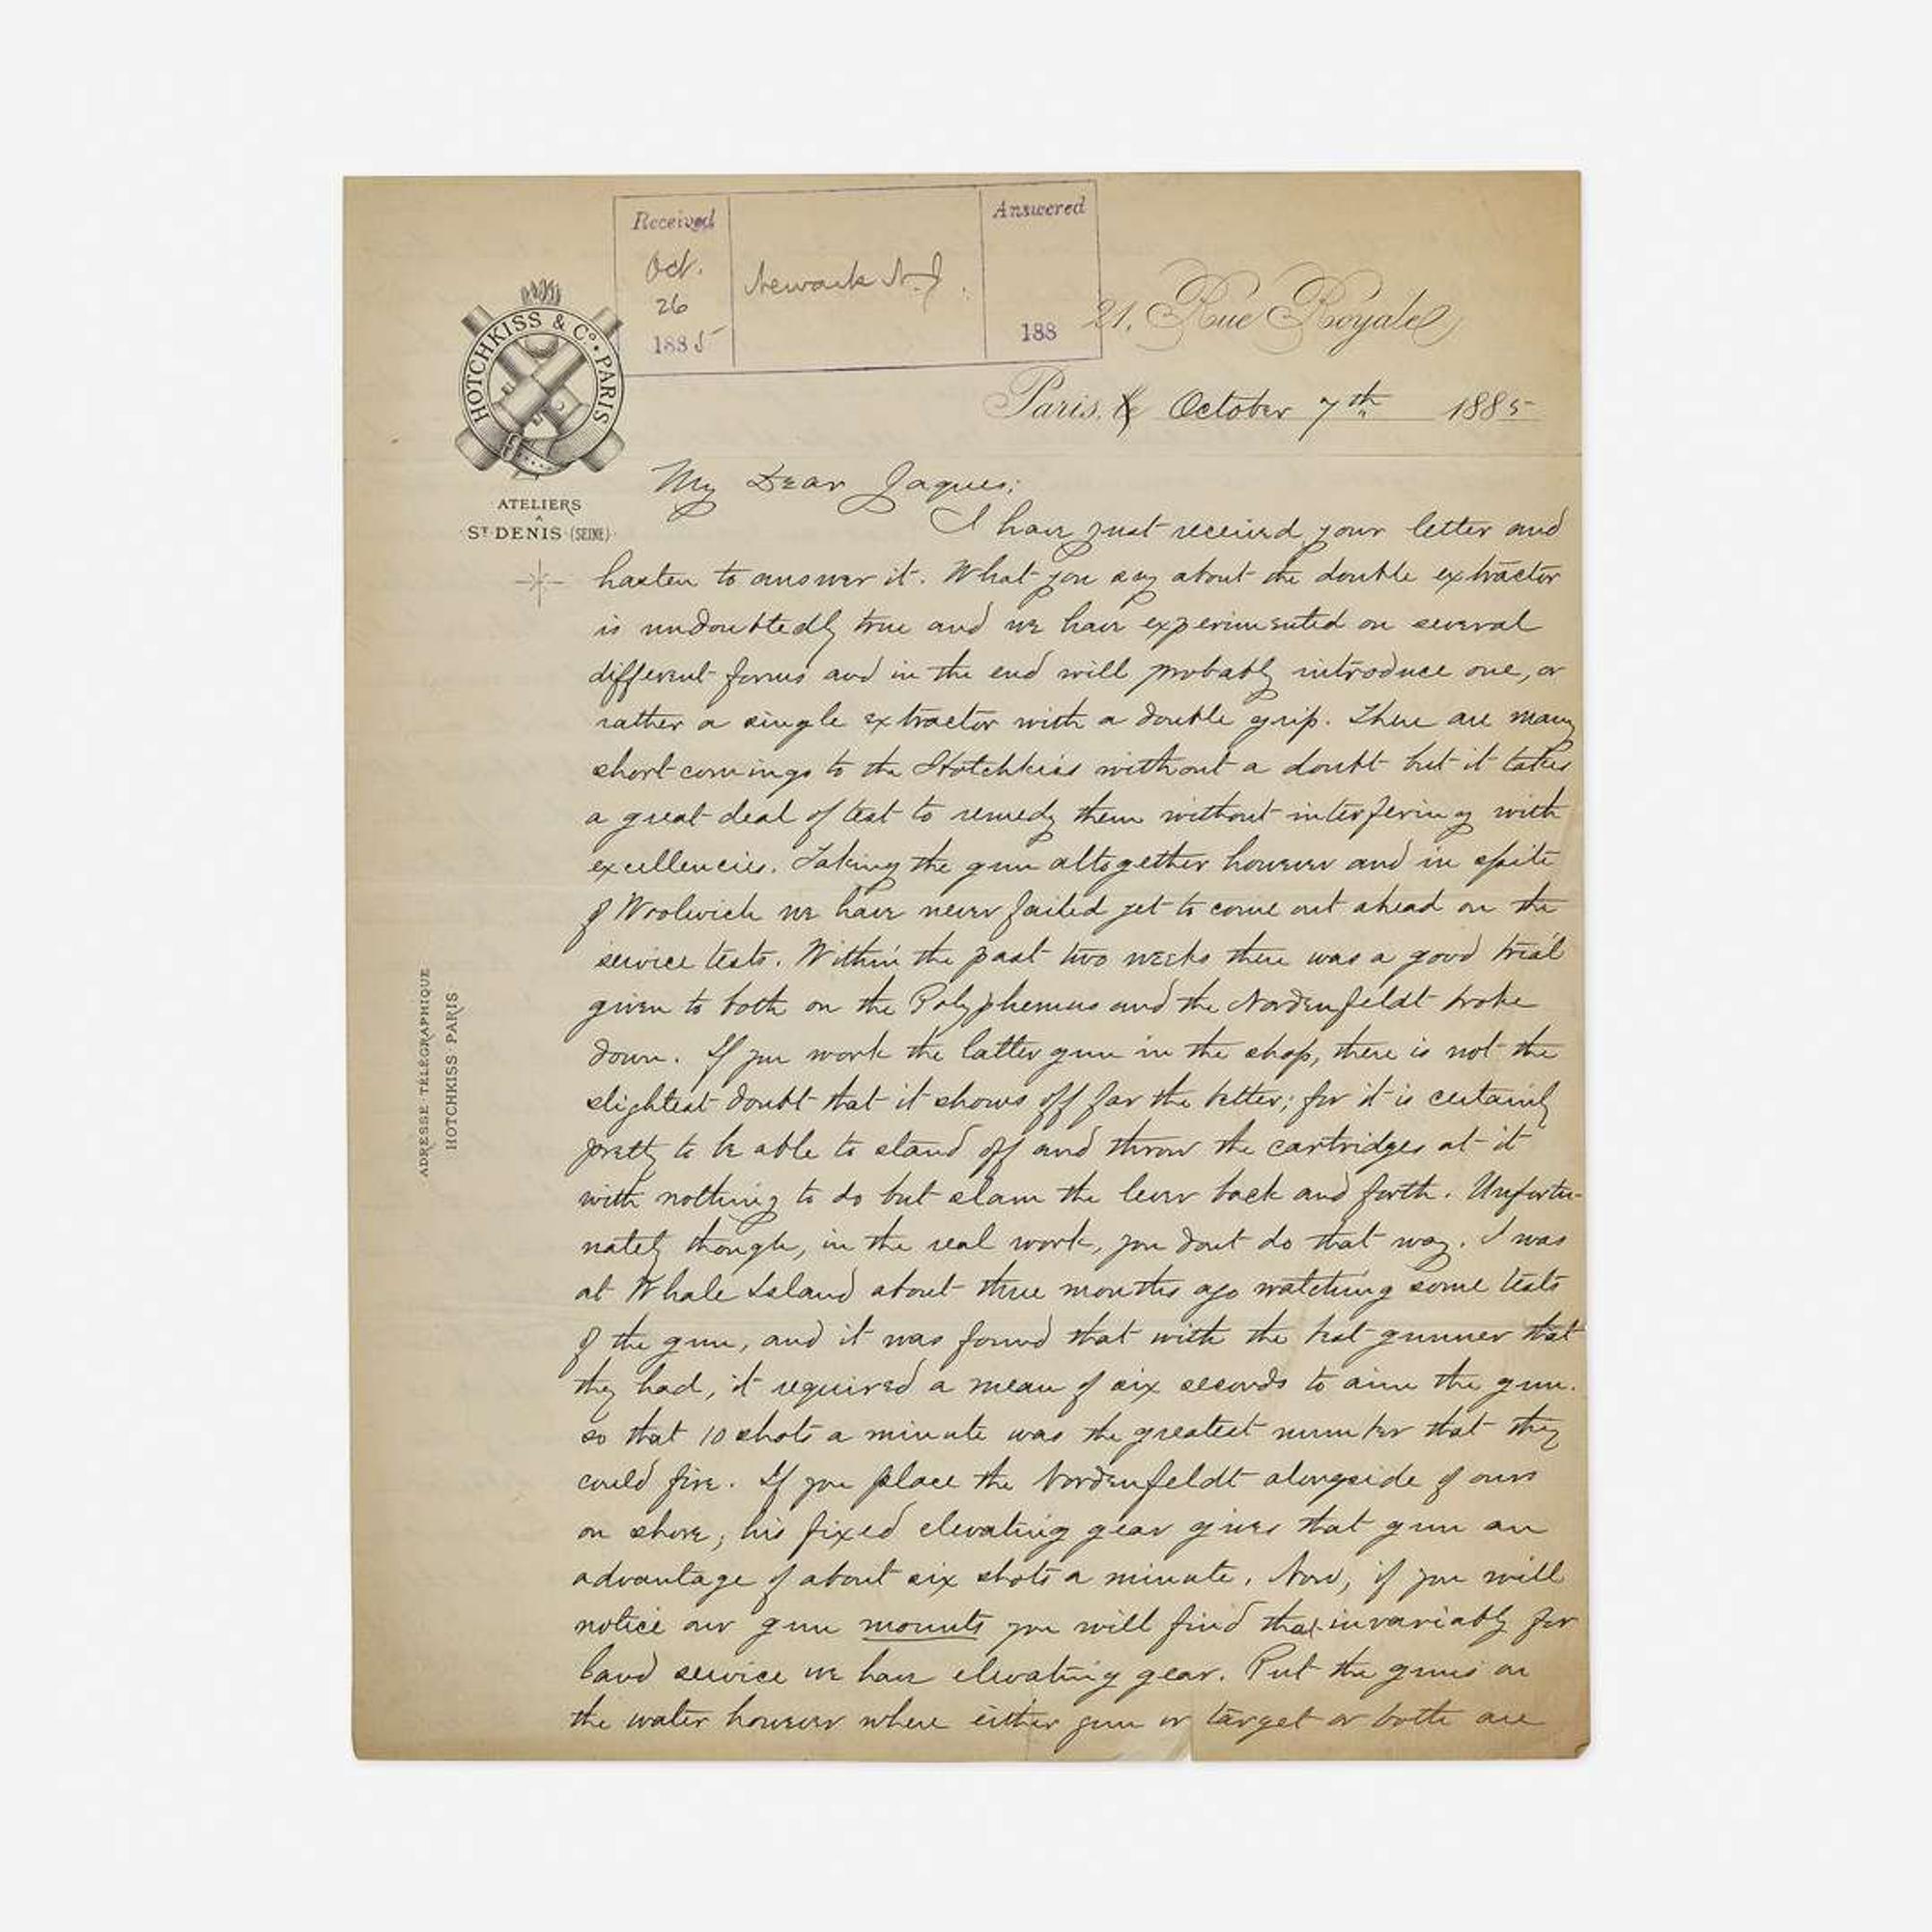 Received
Oct.
26
1885
Newark N.J.
Answered
188
HOTCHKISS & Co. PARIS
ATELIERS
A
ST DENIS (SEINE)
21, Rue Royale
Paris, le October 7th 1885
My Dear Jaques;
I have just received your letter and
hasten to answer it. What you say about the double extractor
is undoubtedly true and we have experimented on several
different forms and in the end will probably introduce one, or
rather a single extractor with a double grip. There are many
short-comings to the Hotchkiss without a doubt but it takes
a great deal of test to remedy them without interfering with
excellencies. Taking the gun altogether however and in spite
of Woolwich we have never failed yet to come out ahead on the
service tests. Within the past two weeks there was a good trial
given to both on the Polyphemus and the Nordenfeldt broke
down. If you work the latter gun in the shop, there is not the
slightest doubt that it shows off far the better; for it is certainly
pretty to be able to stand off and throw the cartridges at it
with nothing to do but slam the lever back and forth. Unfortu-
nately though, in the real work, you dont do that way. I was
at Whale Island about three months ago watching some tests
of the gun, and it was found that with the best gunner that
they had, it required a mean of six seconds to aim the gun.
so that 10 shots a minute was the greatest number that they
could fire. If you place the Nordenfeldt alongside of ours
on shore, his fixed elevating gear gives that gun an
advantage of about six shots a minute. Now, if you will
notice our gun mounts you will find that invariably for
land service we have elevating gear. Put the guns on
the water however where either gun or target or both are
ADRESSE TÉLÉGRAPHIQUE
HOTCHKISS PARIS